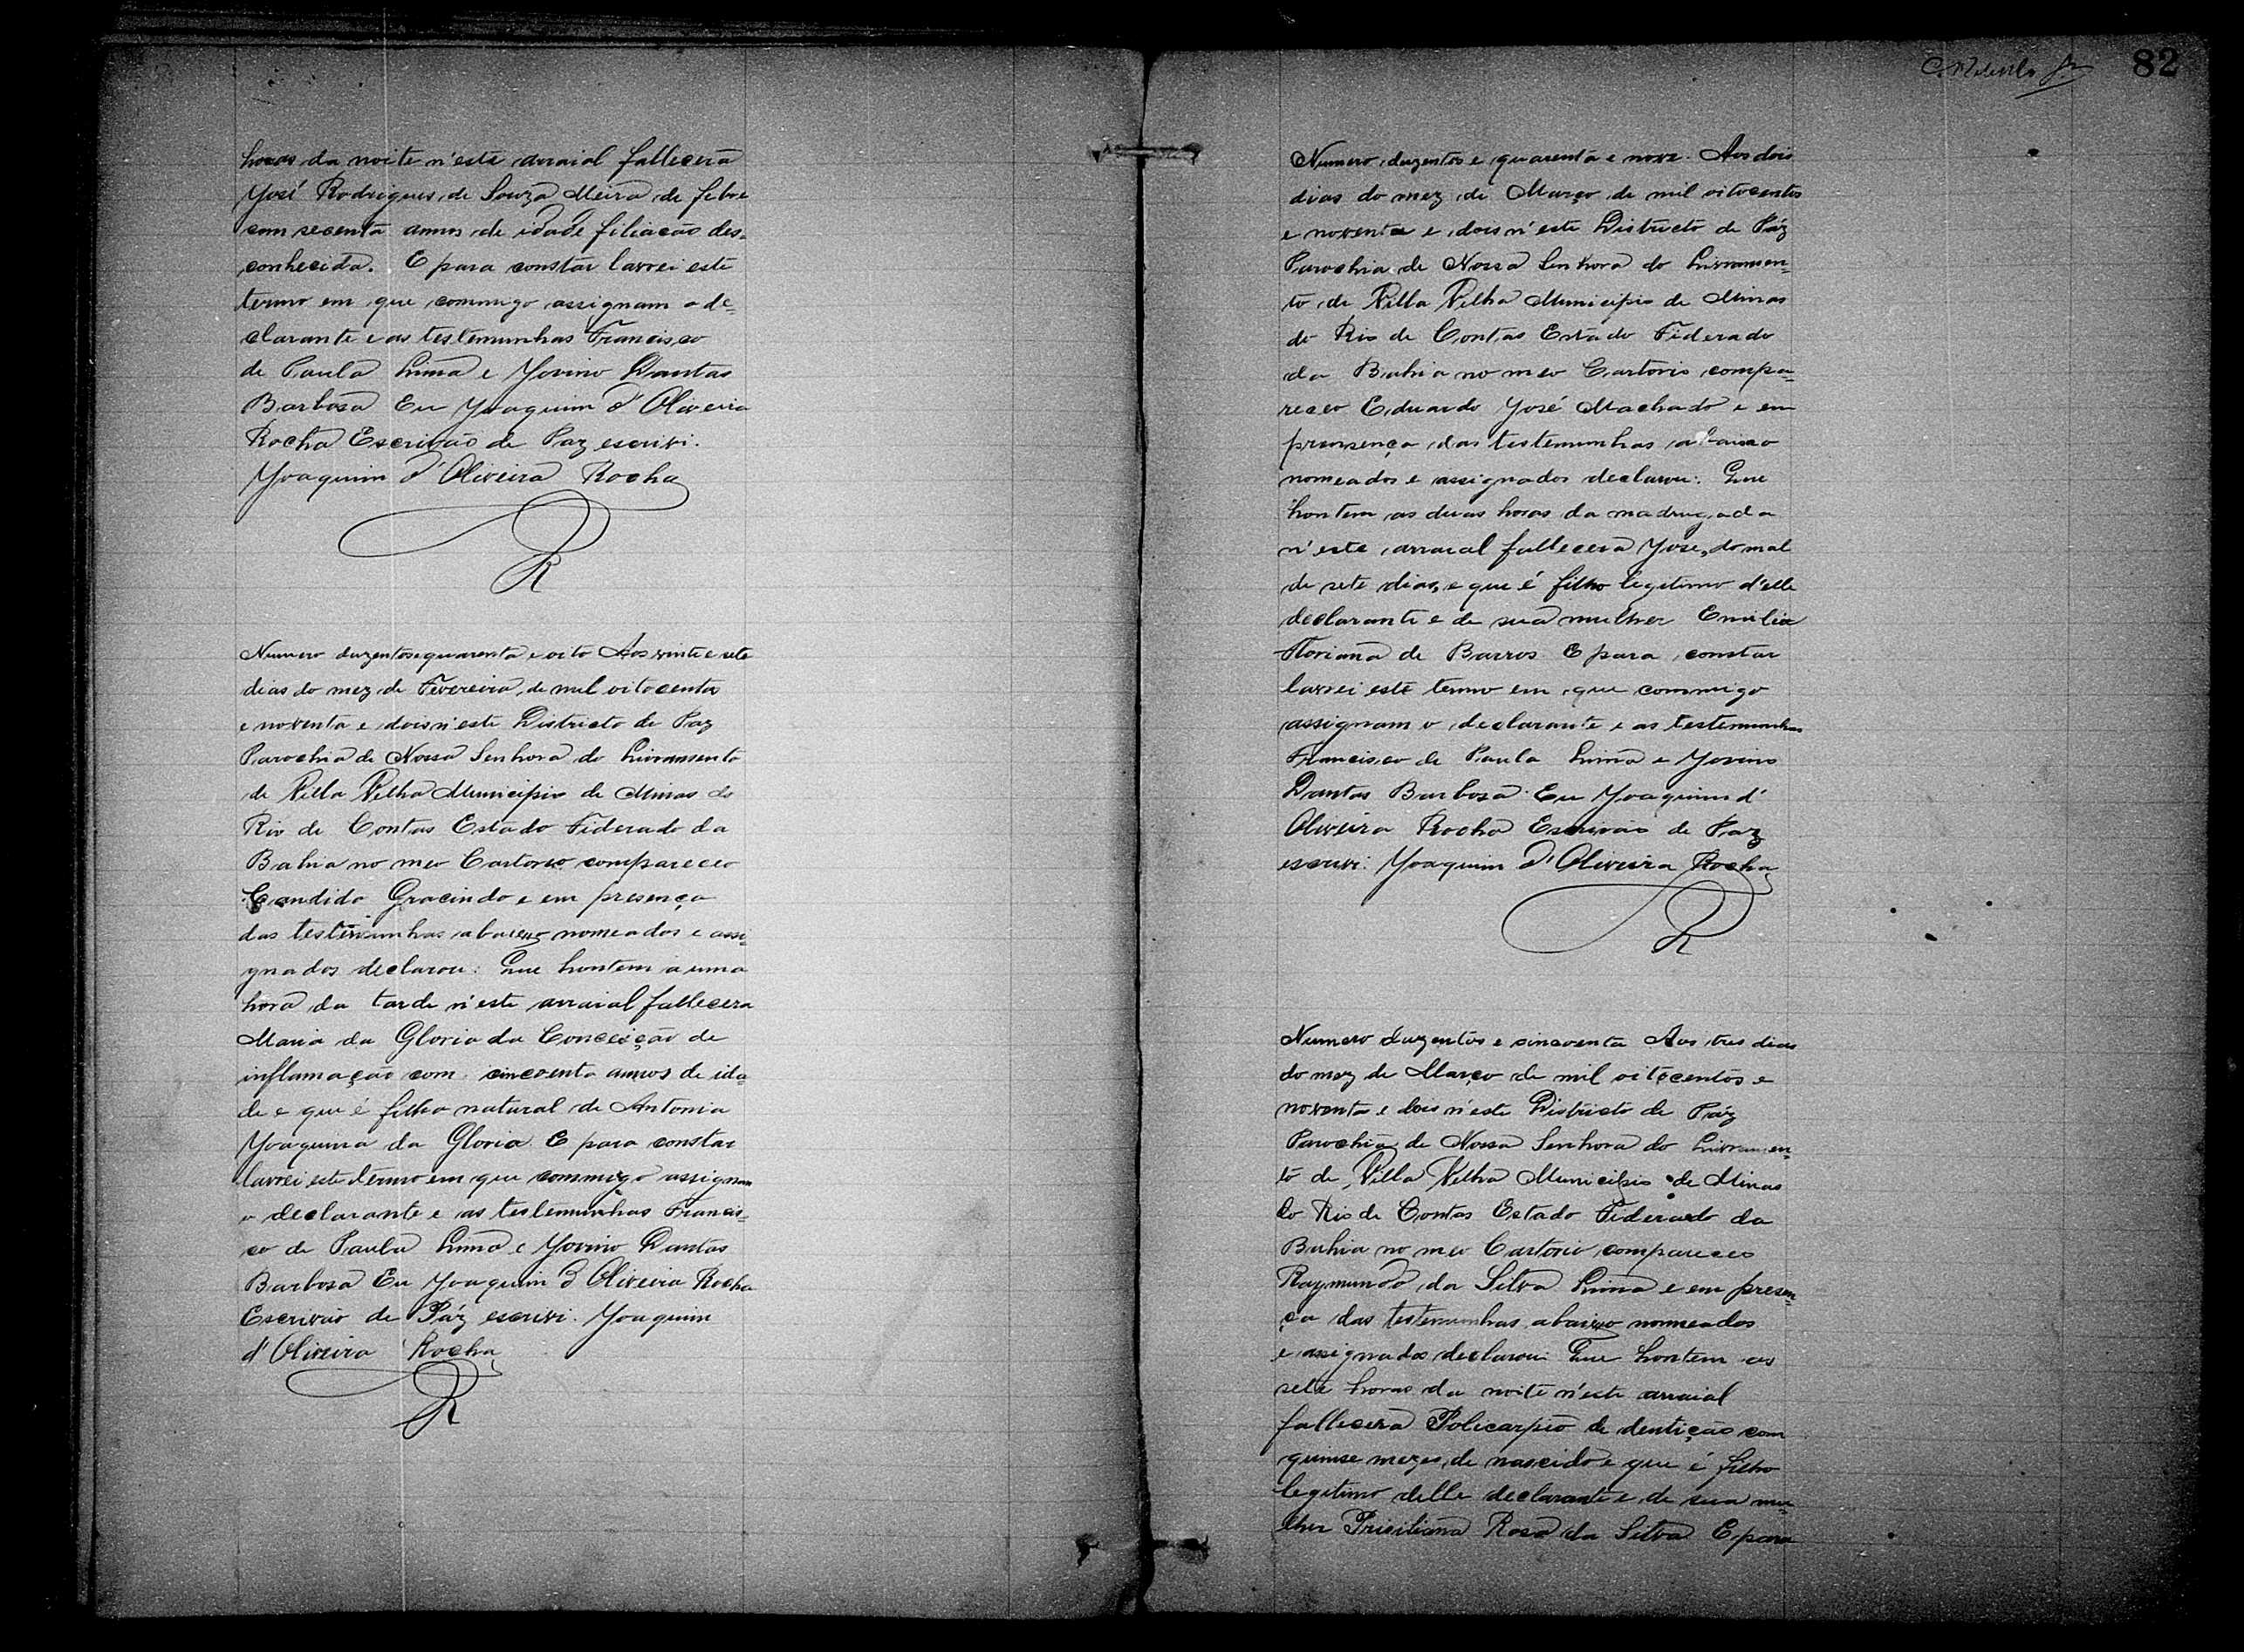 horas da noite n'este arraial fallecera
José Rodrigues de Souza Meira de febre
com secenta annos de idade filiação des-
conhecida. E para constar lavrei este
termo em que commigo assignam o de-
clarante e as testemunhas Francisco
de Paula Lima e Jovino Dantas
Barbosa Eu Joaquim d'Oliveira
Rocha Escrivão de Paz escrivi.
Joaquim d'Oliveira Rocha
R
Numero duzentos e quarenta e oito Aos vinte e sete
dias do mez de Fevereiro de mil oitocentos
e noventa e dois n'este Districto de Paz
Parochia de Nossa Senhora do Livramento
de Villa Velha Municipio de Minas do
Rio de Contas Estado Federado da
Bahia no meo Cartorio compareceo
Candido Gracindo e em presença
das testemunhas abaixo nomeados e assi-
gnados declarou: Que hontem a uma
hora da tarde n'este arraial fallecera
Maria da Gloria da Conceição de
inflamação com cincoenta annos de ida-
de e que é filha natural de Antonia
Joaquina da Gloria E para constar
lavrei este termo em que commigo assignam
o declarante e as testemunhas Francis-
co de Paula Lima e Jovino Dantas
Barbosa Eu Joaquim d'Oliveira Rocha
Escrivão de Páz escrivi. Joaquim
d'Oliveira Rocha
R
82
Numero duzentos e quarenta e nove. Aos dois
dias do mez de Março de mil oitocentos
e noventa e dois n'este Districto de Páz
Parochia de Nossa Senhora do Livramen-
to de Villa Velha Municipio de Minas
do Rio de Contas Estado Federado
da Bahia no meo Cartorio compa-
receo Eduardo José Machado e em
prensença das testemunhas abaixo
nomeados e assignados declarou: Que
hontem as duas horas da madrugada
n'este arraial fallecera José, do mal
de sete dias, e que é filho legitimo d'elle
declarante e de sua mulher Emilia
Floriana de Barros E para constar
lavrei este termo em que commigo
assignam o declarante e as testemunhas
Francisco de Paula Lima e Jovino
Dantas Barbosa Eu Joaquim d'
Oliveira Rocha Escrivão de Paz
escrivi. Joaquim d'Oliveira Rocha
R
Numero duzentos e cincoenta Aos tres dias
do mez de Março de mil oitocentos e
noventa e dois n'este Districto de Páz
Parochia de Nossa Senhora do Livramen-
to de Villa Velha Municipio de Minas
do Rio de Contas Estado Federado da
Bahia no meo Cartorio compareceo
Raymundo da Silva Lima e em presen-
ça das testemunhas abaixo nomeados
e assignados declarou: Que hontem as
sete horas da noite n'este arraial
fallecera Policarpio de dentição com
quinse mezes de nascido e que é filho
legitimo delle declarante e de sua mu-
lher Prisiliana Rosa da Silva E para